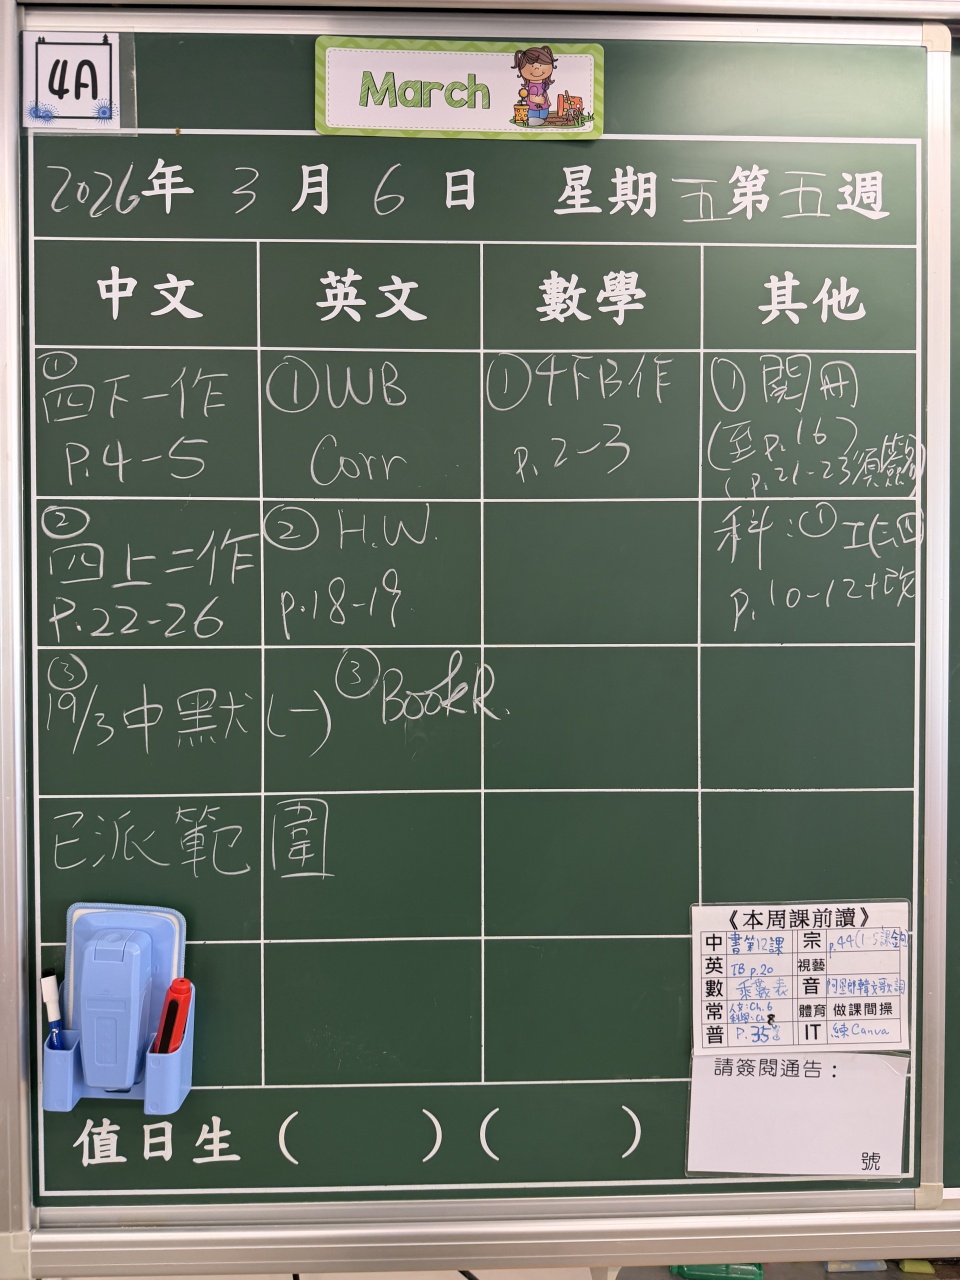 4A
March
2026年 3月 6日 星期五第五週
中文 英文 數學 其他
①四下一作
p.4-5
①WB
Corr
①4下B作
p.2-3
①閱冊
(至p.16)
(p.21-23須簽)
②四上二作
p.22-26
②H.W.
p.18-19
科:①工(二四
p.10-12+改
③19/3中默(一)
已派範圍
③BookR.
《本周課前讀》
中 書第12課 宗 p.44(1-5課
英 TB p.20 視藝
數 乘數表 音
常 人文:Ch.6
科學:Ch8
體育 做課間操
普 P.35 IT 練Canva
請簽閱通告:
號
值日生 ( ) ( )